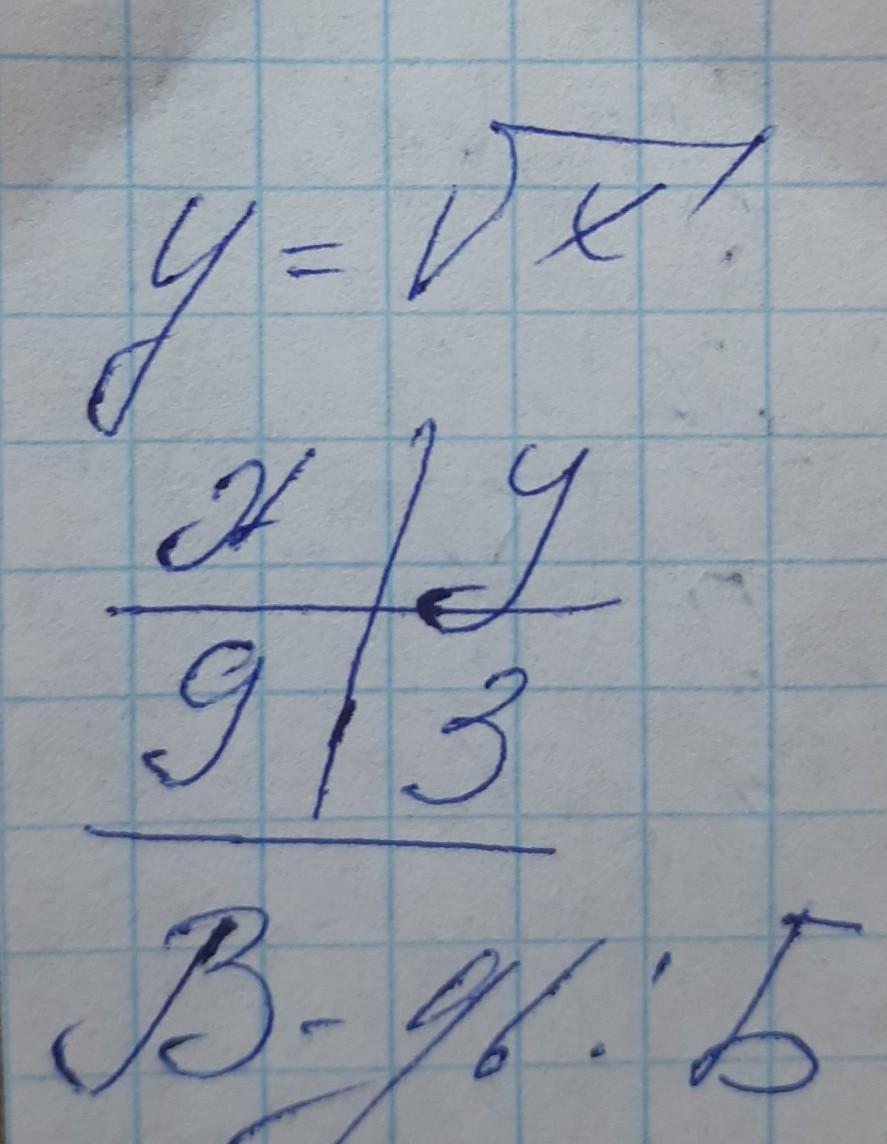 y = √x
x | y
9 | 3
В-дь: Б